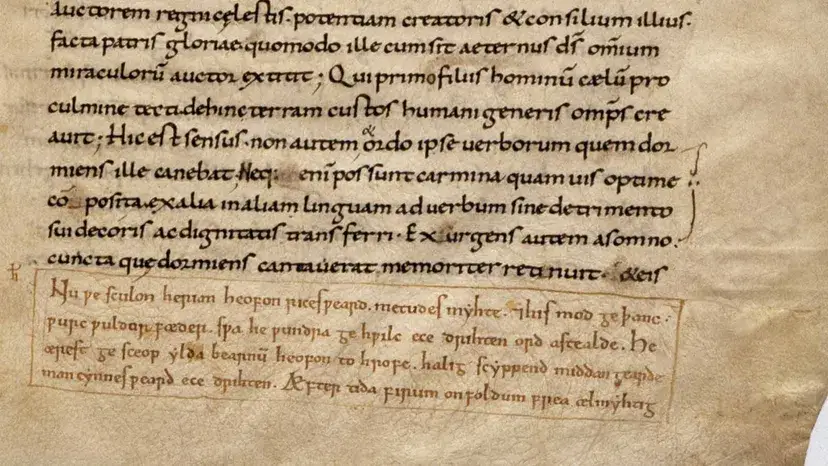 Auctorem regni celestis. potentiam creatoris & consilium illius.
facta patris gloriae. quomodo ille cum sit aeternus dſ̄ omīum
miraculorū auctor extitit; Qui primo filiis hominū cælū pro
culmine tecti. dehinc terram custos humani generis omp̄s cre
auit; Hic est sensus. non autem ordo ipse uerborum quem dor
&
miens ille canebat. Neq; enī possunt carmina quamuis optime
cō posita. ex alia in aliam linguam ad uerbum sine detrimento
sui decoris ac dignitatis transferri. Exurgens autem a somno.
cuncta que dormiens cantauerat memoriter retinuit. & eis
ħ
Nu ƿe sculon herian heofon rices ƿeard. metudes mẏhte. ⁊ his mod ge þanc.
ƿurc ƿuldor fæder. sƿa he ƿundra ge hƿilc ece drihten ord astealde. He
ærest ge sceop ẏlda bearnū heofon to hrofe. halig scẏppend middan gearde
man cẏnnes ƿeard ece drihten. Æfter tida firum on foldum frea ælmẏhtig